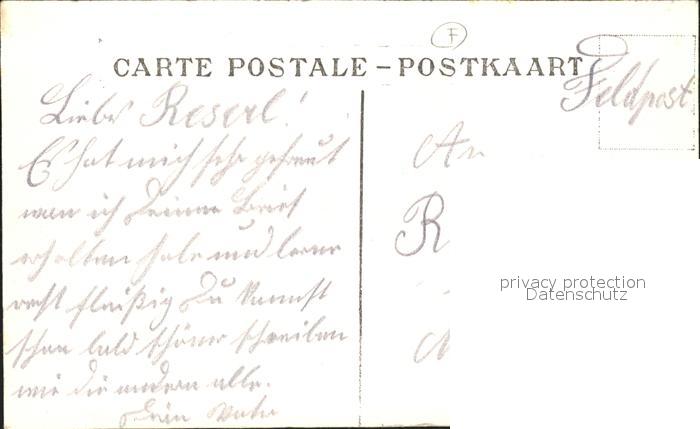 F
CARTE POSTALE – POSTKAART
Feldpost
Liebes Reserl!
Es hat mich sehr gefreut
wan ich Deinen Brief
erhalten habe und lerne
recht fleißig Du kannst
schon bald schöner schreiben
wie die andern alle.
Dein Vater
An
R
privacy protection
Datenschutz